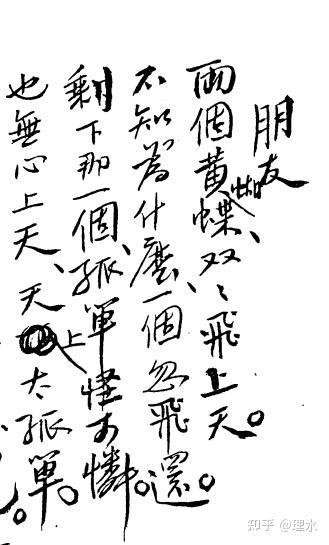 朋友
兩個黃蝴蝶、双々飛上天。
不知為什麼、一個忽飛還。
剩下那一個、孤單怪可憐。
也無心上天、天上太孤單。
知乎 @理水